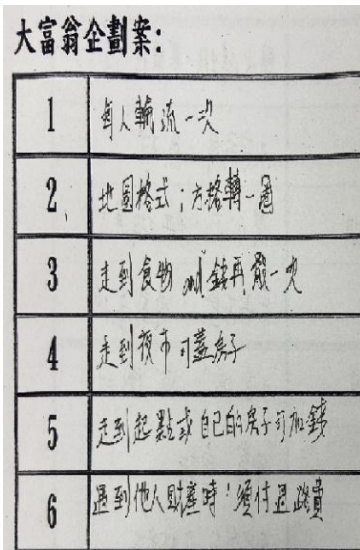 大富翁企劃案:
1 每人輪流一次
2 地圖格式；方格轉一圈
3 走到食物 and 錢再骰一次
4 走到夜市可蓋房子
5 走到起點或自己的房子可加錢
6 遇到他人財產時；須付過路費